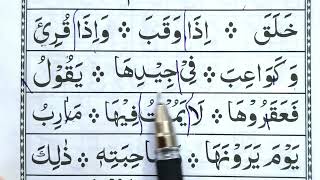 خَلَقَ ❖ اِذَا وَقَبَ ❖ وَاِذَا قُرِئَ
وَكَوَاعِبَ ❖ فِيْ جِيْدِهَا ❖ يَقُوْلُ
فَعَقَرُوْهَا ❖ لَا يَمُوْتُ فِيْهَا ❖ مَاٰرِبُ
يَوْمَ يَرَوْنَهَا ❖ صَاحِبَتِهٖ ❖ ذٰلِكَ